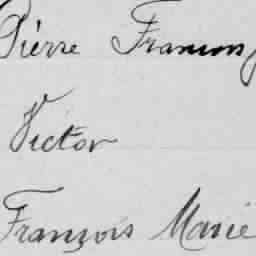 Pierre François
Victor
François Marie